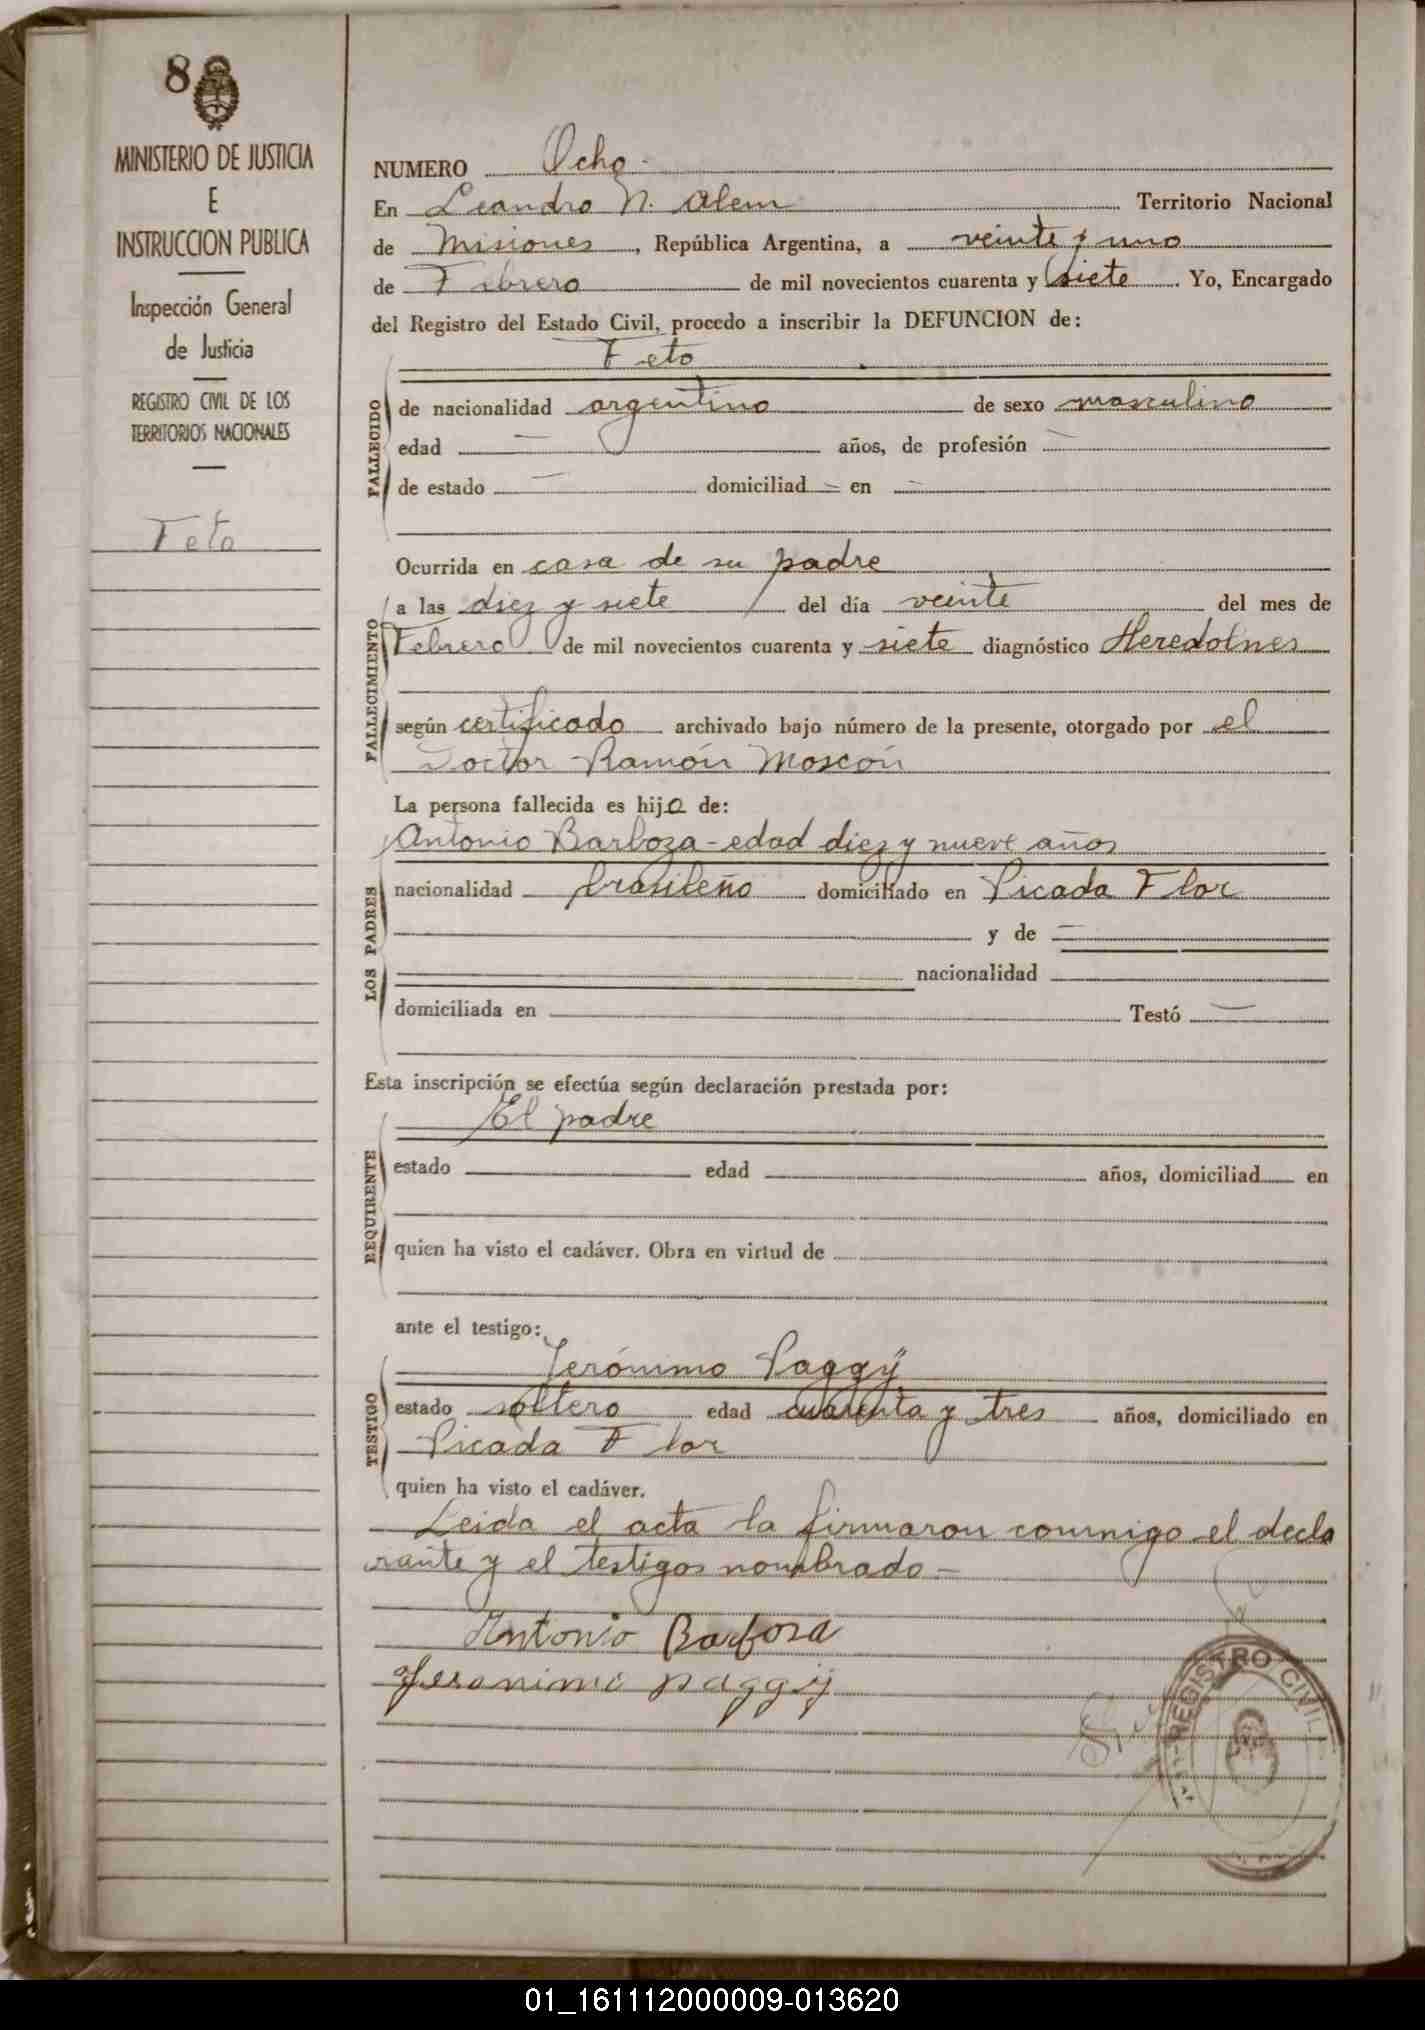 8
MINISTERIO DE JUSTICIA
E
INSTRUCCION PUBLICA
Inspección General
de Justicia
REGISTRO CIVIL DE LOS
TERRITORIOS NACIONALES
Feto
NUMERO Ocho
En Leandro N. Alem Territorio Nacional
de Misiones, República Argentina, a veinte y uno
de Febrero de mil novecientos cuarenta y siete. Yo, Encargado
del Registro del Estado Civil, procedo a inscribir la DEFUNCION de:
Feto
FALLECIDO
de nacionalidad argentino de sexo masculino
edad — años, de profesión —
de estado — domiciliad — en —
Ocurrida en casa de su padre
FALLECIMIENTO
a las diez y siete del día veinte del mes de
Febrero de mil novecientos cuarenta y siete diagnóstico Heredolues
según certificado archivado bajo número de la presente, otorgado por el
Doctor Ramón Moscón
La persona fallecida es hijo de:
LOS PADRES
Antonio Barboza - edad diez y nueve años
nacionalidad brasileño domiciliado en Picada Flor
y de —
nacionalidad
domiciliada en Testó —
Esta inscripción se efectúa según declaración prestada por:
REQUIRENTE
El padre
estado edad años, domiciliad en
quien ha visto el cadáver. Obra en virtud de
ante el testigo:
TESTIGO
Jerónimo Paggÿ
estado soltero edad cuarenta y tres años, domiciliado en
Picada Flor
quien ha visto el cadáver.
Leida el acta la firmaron conmigo el decla
rante y el testigos nombrado —
Antonio Barboza
Jeronimo paggij
REGISTRO CIVIL
01_161112000009-013620